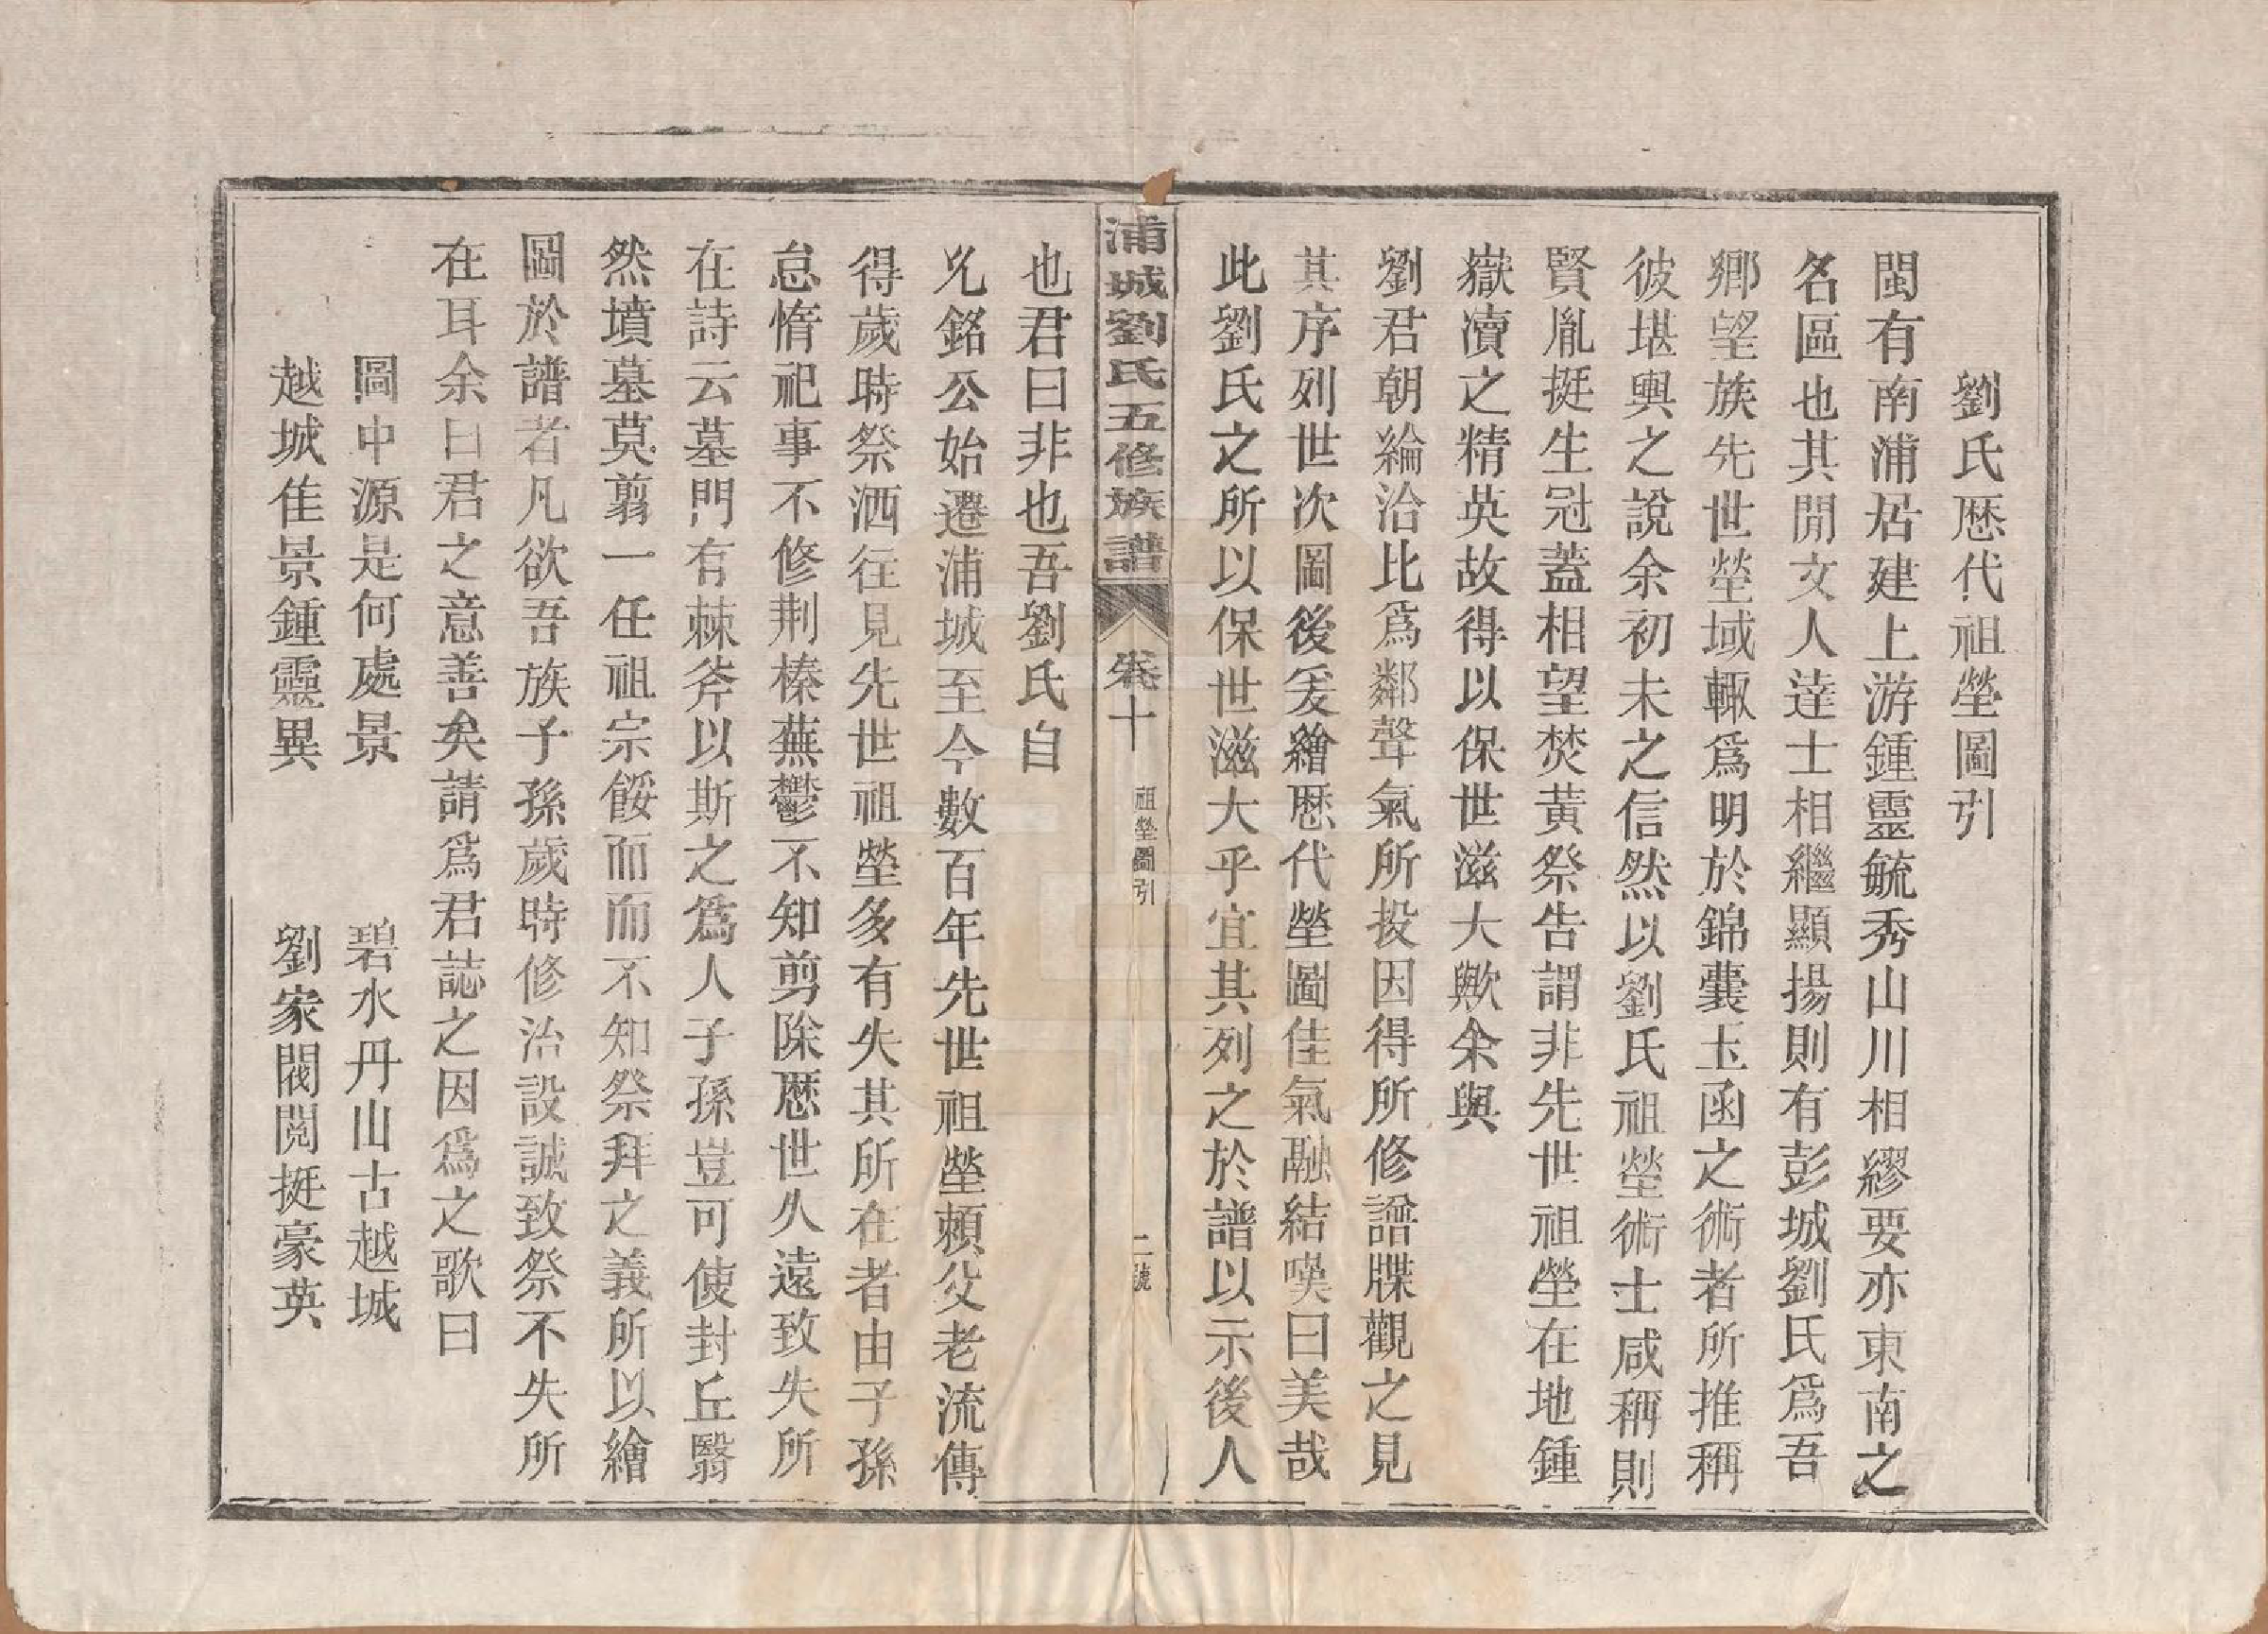 劉氏歷代祖塋圖引
閩有南浦居建上游鍾靈毓秀山川相繆要亦東南之
名區也其閒文人達士相繼顯揚則有彭城劉氏爲吾
鄉望族先世塋域輙爲明於錦囊玉函之術者所推稱
彼堪輿之說余初未之信然以劉氏祖塋術士咸稱則
賢胤挺生冠蓋相望焚黃祭告謂非先世祖塋在地鍾
嶽瀆之精英故得以保世滋大歟余與
劉君朝綸洽比爲鄰聲氣所投因得所修譜牒觀之見
其序列世次圖後爰繪歷代塋圖佳氣融結嘆曰美哉
此劉氏之所以保世滋大乎宜其列之於譜以示後人
浦城劉氏五修族譜 卷十 祖塋圖引 二號
也君曰非也吾劉氏自
允銘公始遷浦城至今數百年先世祖塋賴父老流傳
得歲時祭洒往見先世祖塋多有失其所在者由子孫
怠惰祀事不修荆榛蕪鬱不知剪除歷世久遠致失所
在詩云墓門有棘斧以斯之爲人子孫豈可使封丘翳
然墳墓莫翦一任祖宗餒而而不知祭拜之義所以繪
圖於譜者凡欲吾族子孫歲時修治設誠致祭不失所
在耳余曰君之意善矣請爲君誌之因爲之歌曰
圖中源是何處景 碧水丹山古越城
越城佳景鍾靈異 劉家閥閱挺豪英